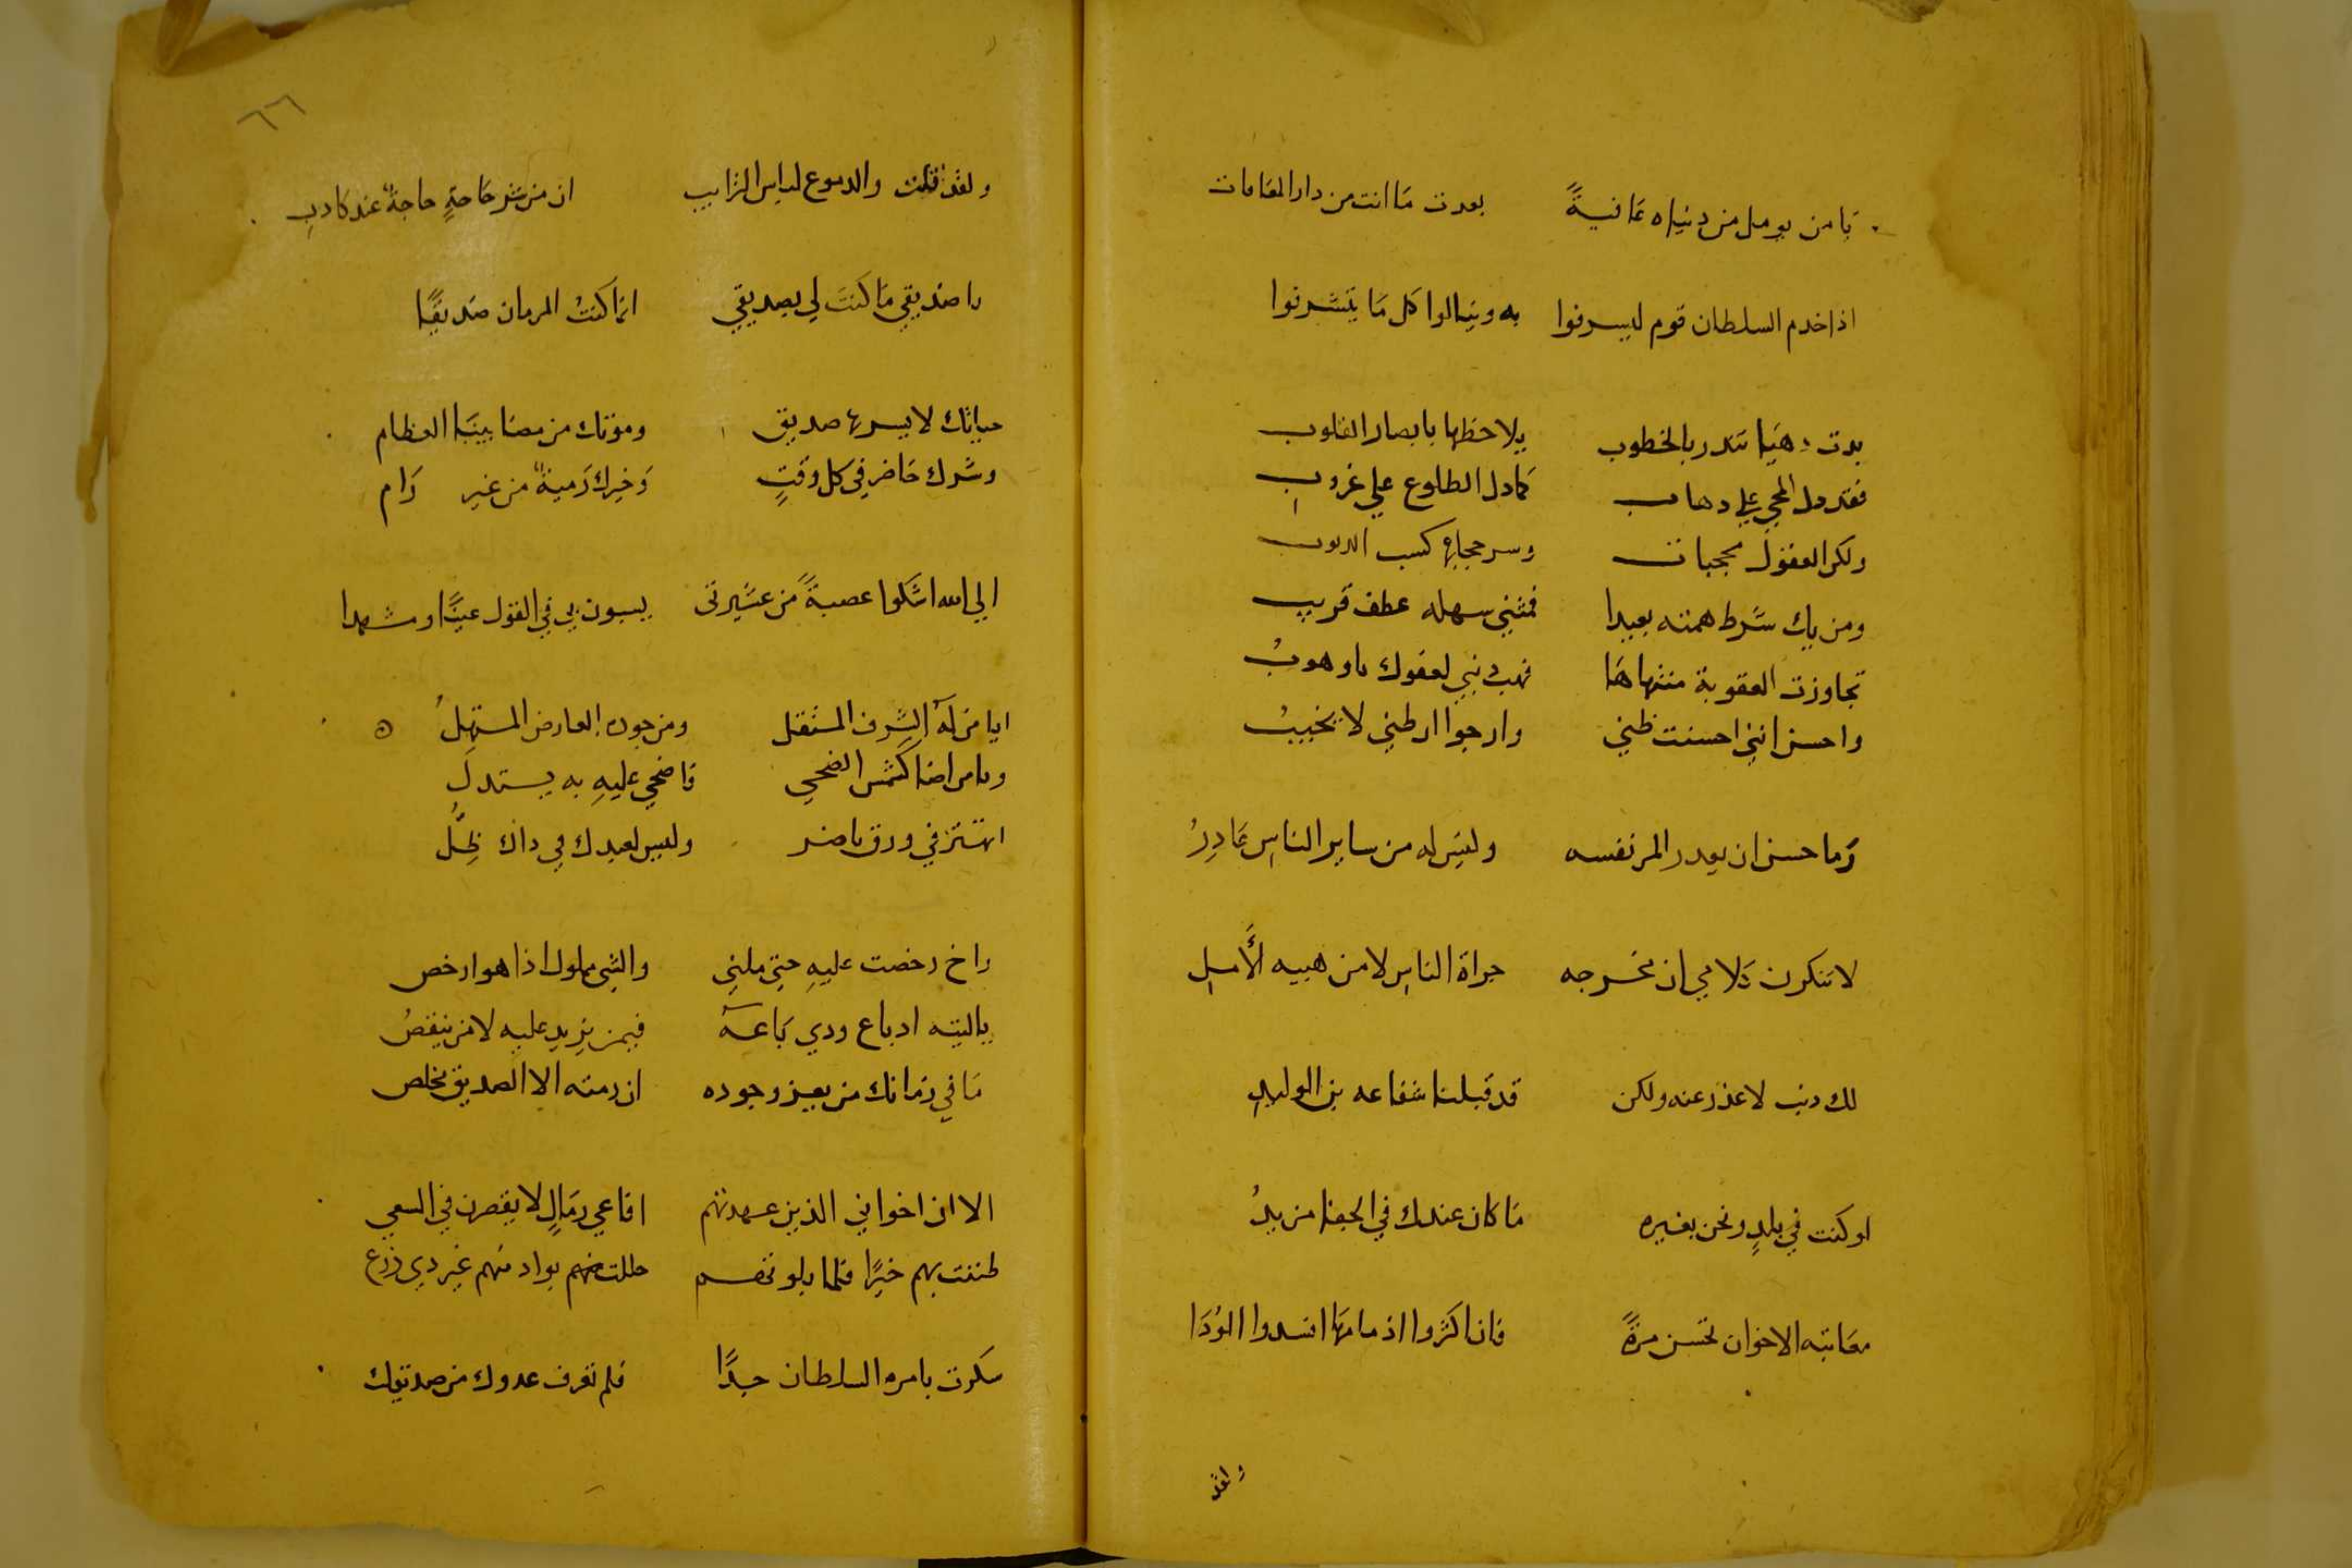 يا من يومل من دنياه عافيةً بعدت ما انت من دار المعافات
اذا خدم السلطان قوم ليسرفوا به وينالوا كل ما يتشرفوا
بدت دهيا تندر بالخطوب يلاحظها بابصار القلوب
فقد دل المجي علي دهاب كما دل الطلوع علي غروب
ولكن العقول محجبات وسر حجابها كسب الدنوب
ومن يك شرط همته بعيدا فمثني سهله عطف قريب
تجاوزت العقوبة منتهاها فهب دنبي لعفوك يا وهوبُ
واحسن انني احسنت ظني وارجوا ان ظني لا يخيبُ
وما حسن ان يعدر المر نفسه وليس له من ساير الناس عادرُ
لا تنكرن كلامي ان مخرجه جراة الناس لا من هيبه الأمل
لك دنب لا عذر عنه ولكن قد قبلنا شفاعه بن الوليدِ
لو كنت في بلدٍ ونحن بغيره ما كان عندك في الجفا من يدُ
معاتبه الاخوان تحسن مرةً فان اكثروا ادمانها افسدوا الوُدَا
ولقد
٦٦
ولقد قلت والدموع لباس الترايب ان من شر حاجةٍ حاجةٌ عند كادبِ
يا صديقي ما كنتَ لي بصديقي انما كنتْ للزمان صديقًا
حياتك لا يسر بها صديق وموتك من مصايبنا العظام
وشرك حاضر في كل وقتٍ وخيرك رميةٌ من غير رام
الي الله اشكوا عصبةً من عشيرتى يسيون لي في القول عيبًا ومشهدا
ايا من له الشرف المستقل ومن جوده العارض المستهلُ
ويا من اضا كشمس الضحي فاضحي عليهِ به يستدلُ
اتهتز في ورق ناضر وليس لعبدك في داك ظِلُّ
راخ رخصت عليهِ حتي ملني والشي مملول اذا هو ارخص
ياليته اد باع ودي باعه فيمن يزيد عليه لا من ينقصُ
ما في زمانك من يعز وجوده ان رمته الا الصديق مخلص
الا ان اخواني الذين عهدتهم افاعي رمالٍ لا يقصرن في السعي
ظننت بهم خيرًا فلما بلوتهم حللت منهم بواد منهم غير دي زرع
سكرت بامره السلطان جدًا فلم تعرف عدوك من صديقك